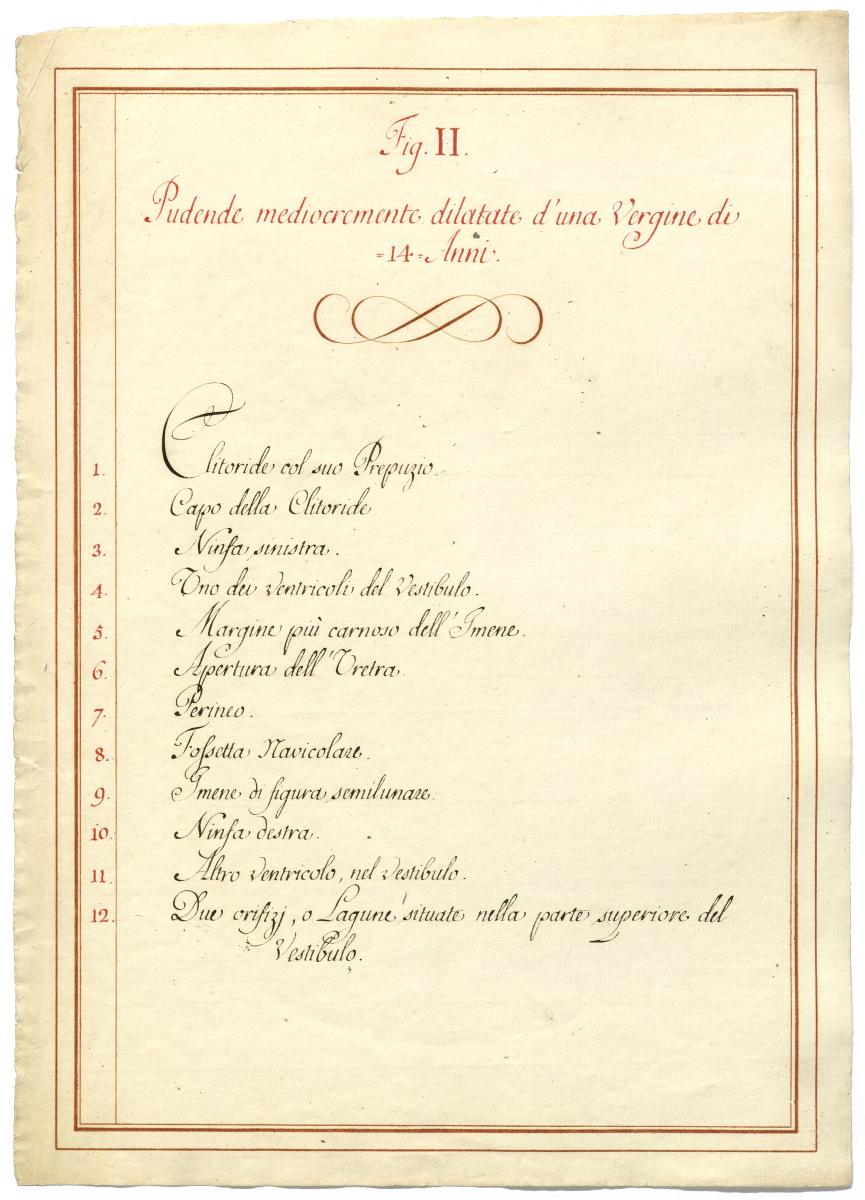 Fig. II.
Pudende mediocremente dilatate d'una Vergine di
=14= Anni.
1. Clitoride col suo Prepuzio.
2. Capo della Clitoride
3. Ninfa sinistra.
4. Uno dei ventricoli del Vestibulo.
5. Margine più carnoso dell'Imene.
6. Apertura dell'Uretra.
7. Perineo.
8. Fossetta Navicolare.
9. Imene di figura semilunare.
10. Ninfa destra.
11. Altro ventricolo, nel Vestibulo.
12. Due orifizj, o Lagune situate nella parte superiore del
Vestibulo.